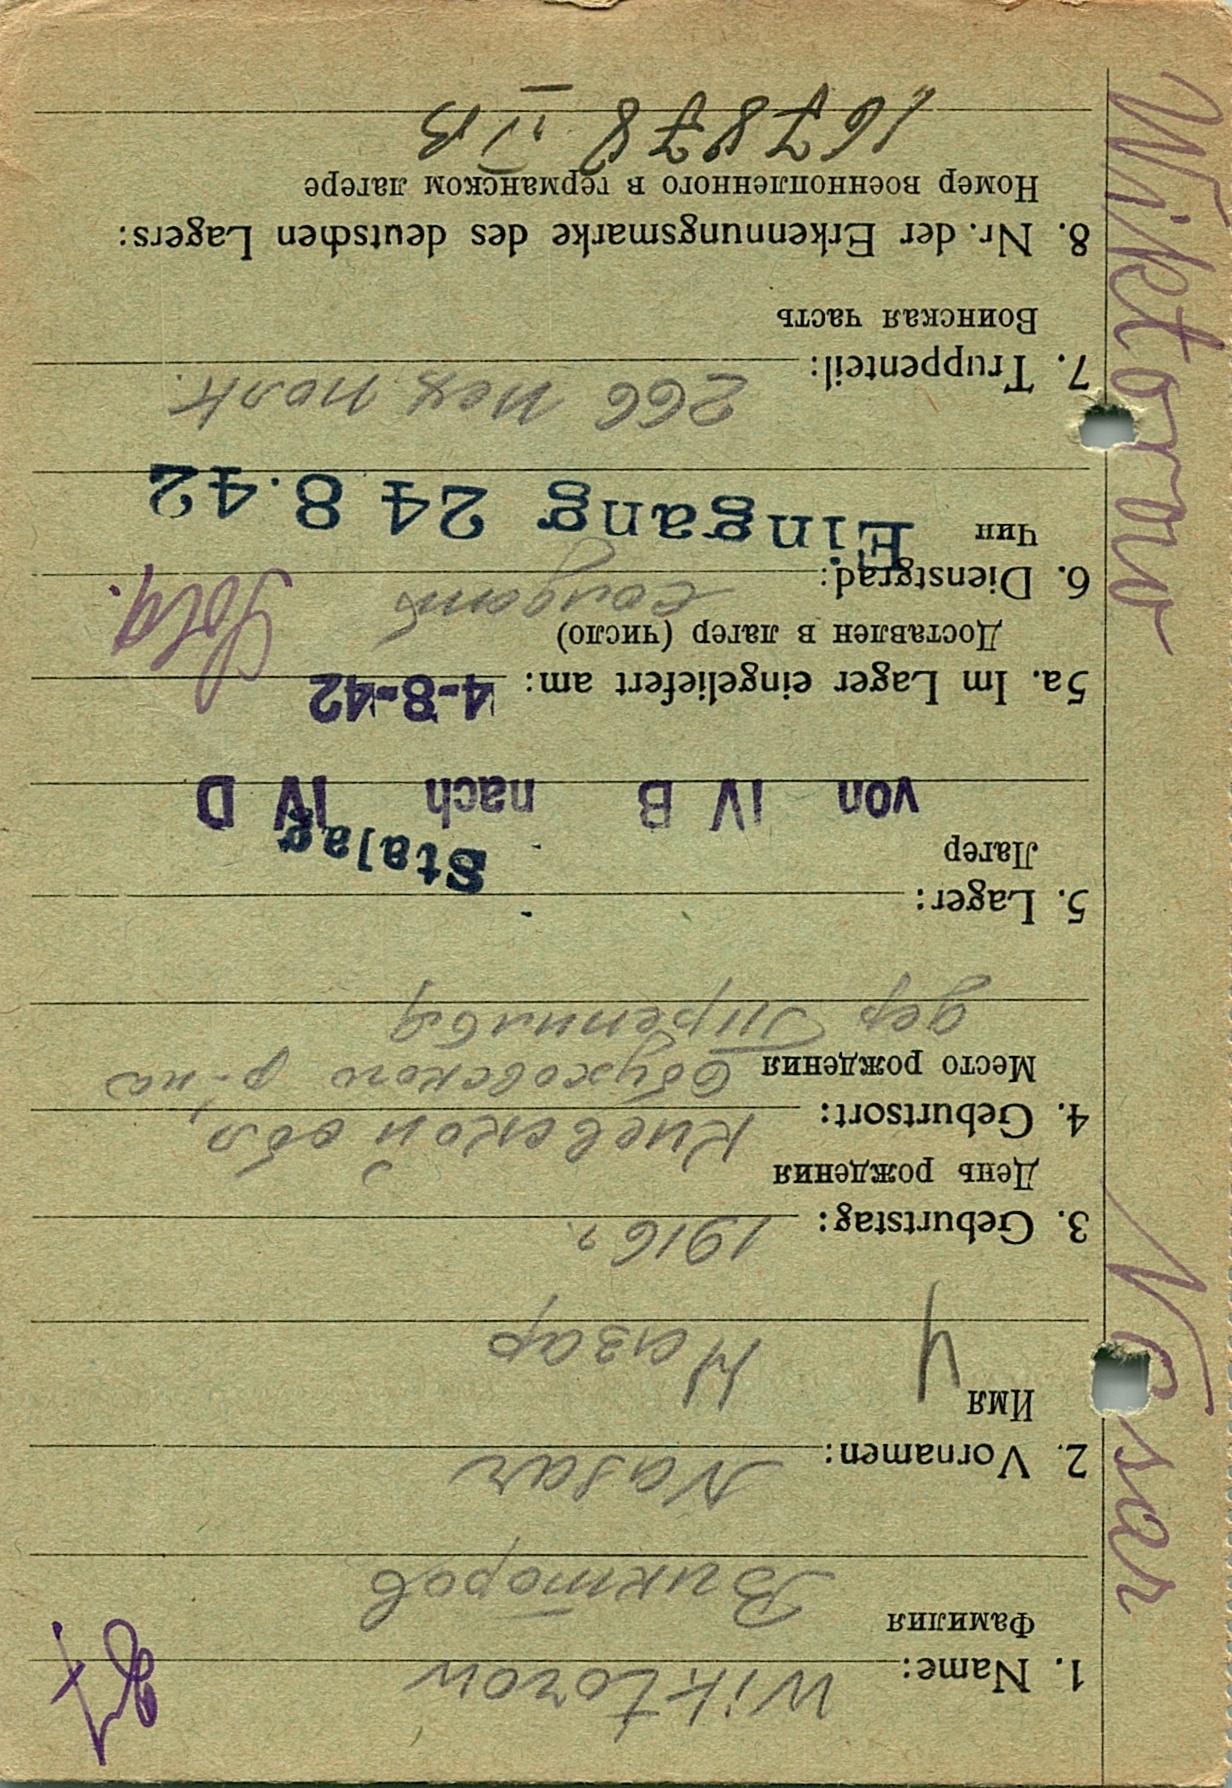 Wiktorow Nasar
1. Name: Wiktorow
Фамилия Викторов
2. Vornamen: Nasar
Имя Назар
3. Geburtstag: 1916 г.
День рождения
4. Geburtsort: Киевской обл,
Место рождения Обуховского р-на
дер
5. Lager:
Лагер Stalag
von IV B nach IV D
5a. Im Lager eingeliefert am: 4-8-42
Доставлен в лагер (число)
6. Dienstgrad: солдат Sold.
Чин Eingang 24 8.42
7. Truppenteil: 266 пех полк.
Воинская часть
8. Nr. der Erkennungsmarke des deutschen Lagers:
Номер военнопленного в германском лагере
167878 IV B